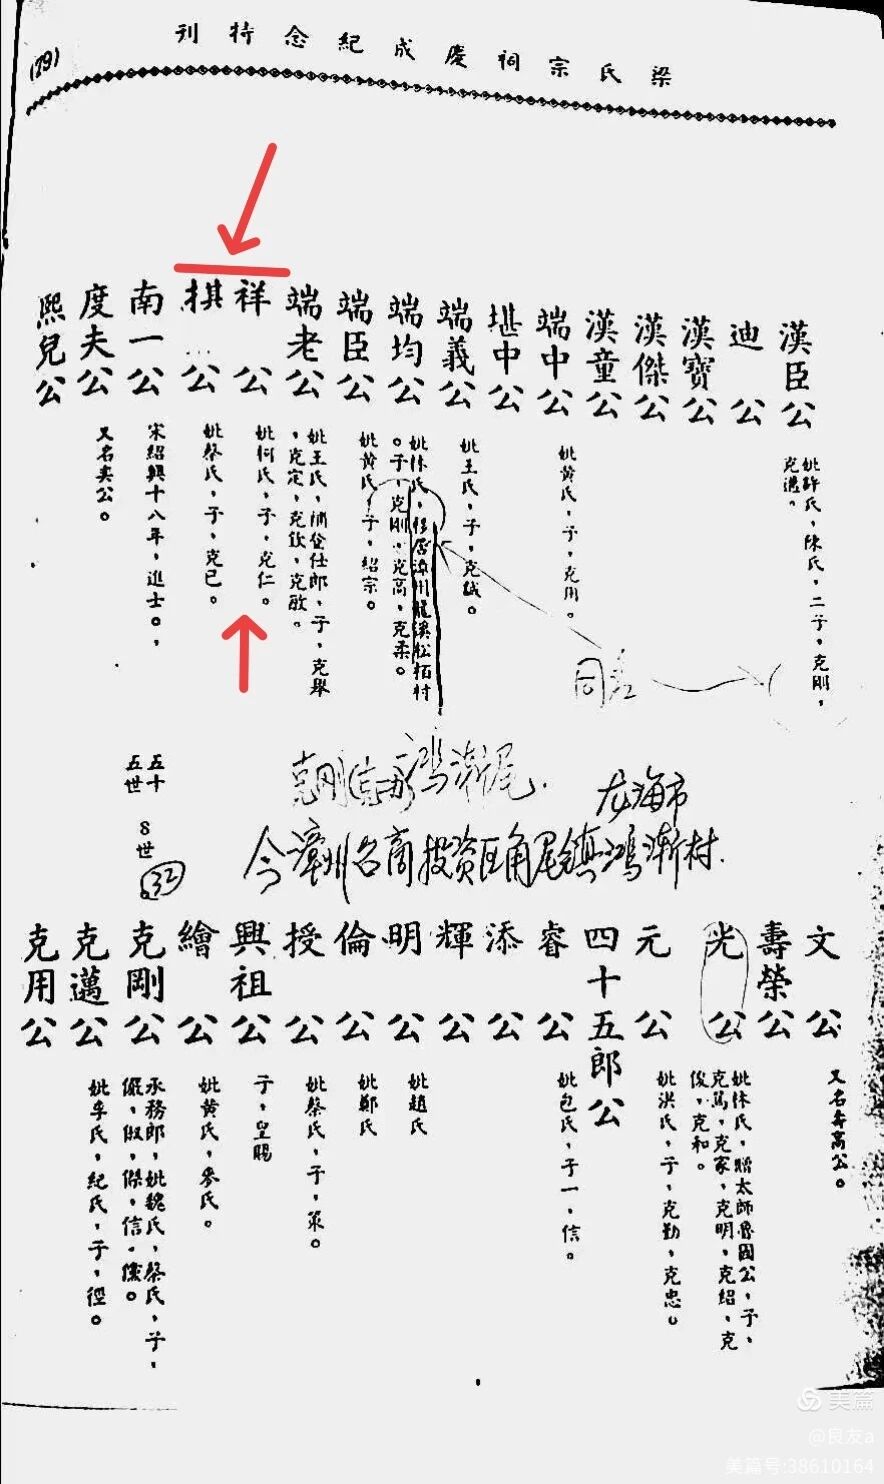 梁氏宗祠慶成紀念特刊
(79)
漢臣公
妣許氏，陳氏，二子，克剛，
克邁。
迪公
漢寶公
漢傑公
漢童公
端中公
妣黄氏，子，克用。
堪中公
端義公
妣王氏，子，克誠。
端均公
妣林氏，移居漳州龍溪松栢村
。子，克剛，克高，克柔。
端臣公
妣黄氏，子，紹宗。
端老公
妣王氏，補登仕郎，子，克舉
，克定，克欽，克敵。
祥公
妣柯氏，子，克仁。
掑公
妣蔡氏，子，克已。
南一公
宋紹興十八年，進士。，
度夫公
又名奂公。
熙兒公
同
龙海市
今漳州台商投资区角尾镇鴻漸村.
五十
五世
8世
32
文公
又名壽高公。
壽榮公
光公
妣林氏，贈太師魯國公，子，
克篤，克家，克明，克紹，克
俊，克和。
元公
妣洪氏，子，克勤，克忠。
四十五郎公
睿公
妣包氏，子一，信。
添公
輝公
明公
妣趙氏
倫公
妣鄭氏
授公
妣蔡氏，子，策。
興祖公
子，皇賜
繪公
妣黄氏，麥氏。
克剛公
承務郎，妣魏氏，蔡氏，子，
儼，俶，傑，信，儒。
克邁公
妣李氏，紀氏，子，徑。
克用公
美篇
@良友a
美篇号:38610164